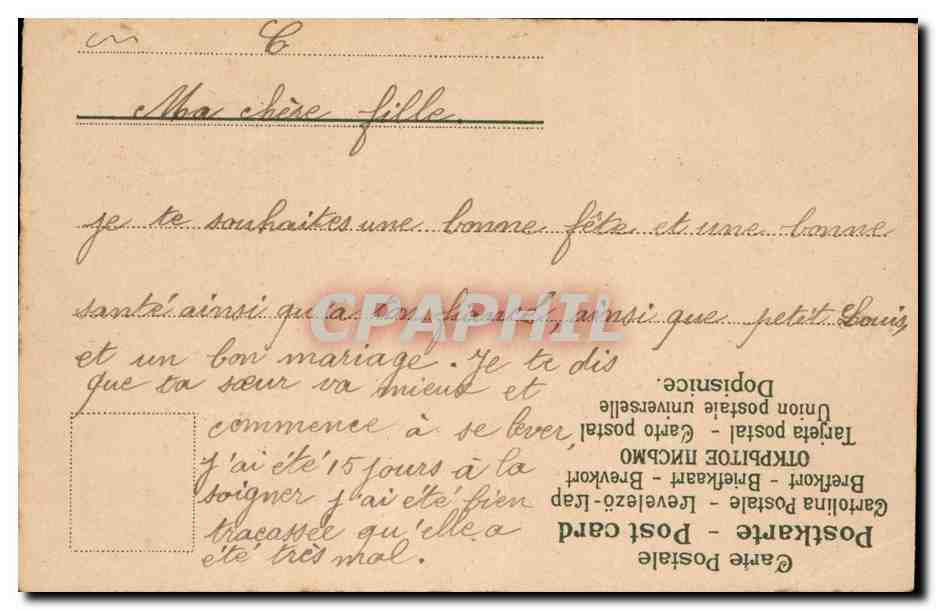 C
Ma chère fille.
je te souhaites une bonne fête et une bonne
santé ainsi qu'a ton fiancé, ainsi que petit Louis,
et un bon mariage. Je te dis
que ta sœur va mieux et
commence à se lever,
j'ai été 15 jours à la
soigner j'ai été bien
tracassée qu'elle a
été très mal.
CPAPHIL
Carte Postale
Postkarte - Post card
Cartolina Postale - Levelező-Lap
Brefkort - Briefkaart - Brevkort
ОТКРЫТОЕ ПИСЬМО
Tarjeta postal - Carto postal
Union postale universelle
Dopisnice.